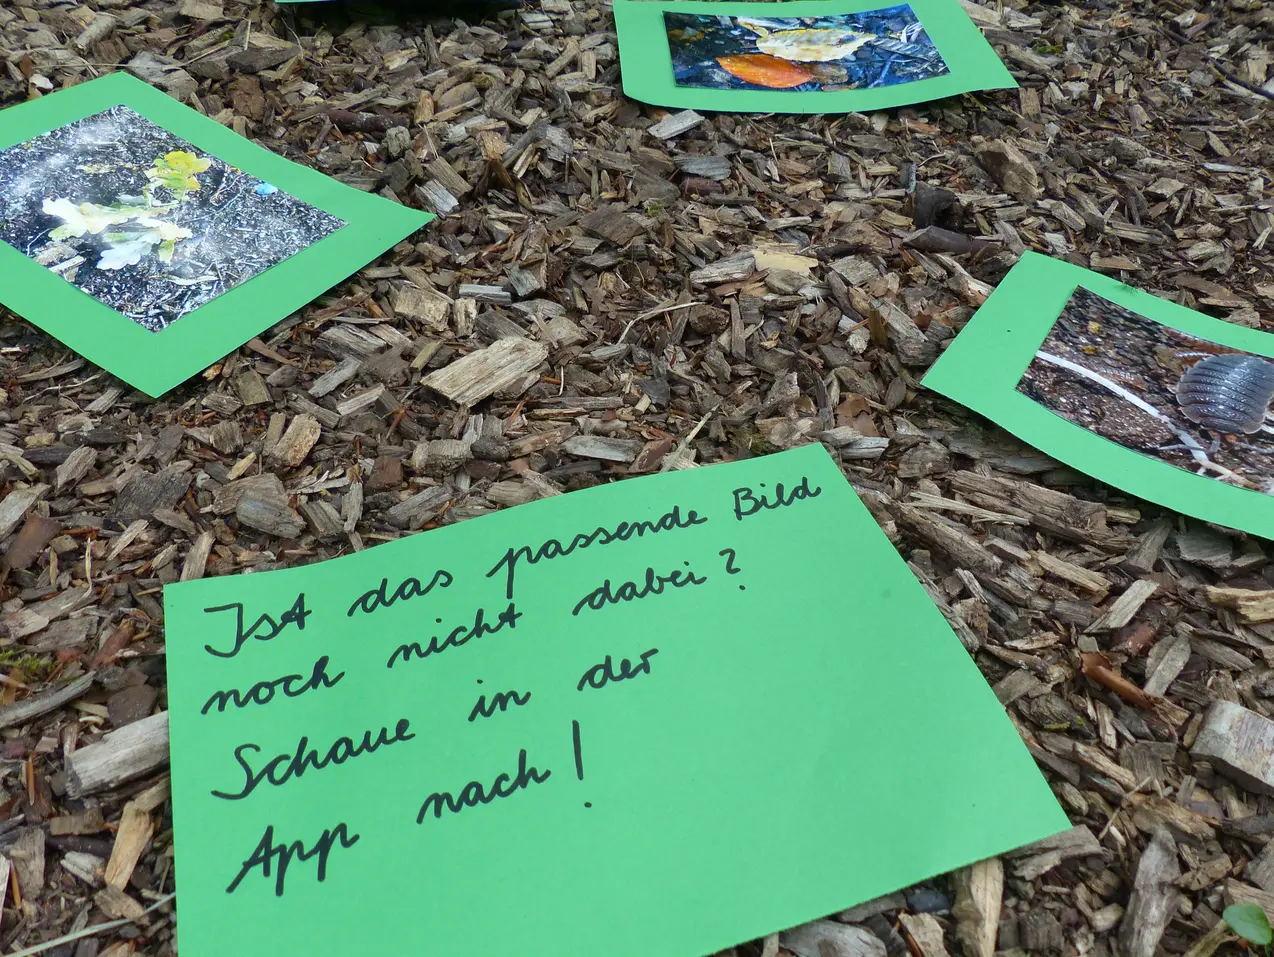 Ist das passende Bild
noch nicht dabei?
Schaue in der
App nach!